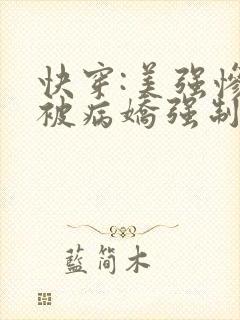 快穿:美强惨
被病娇强制
藍简木